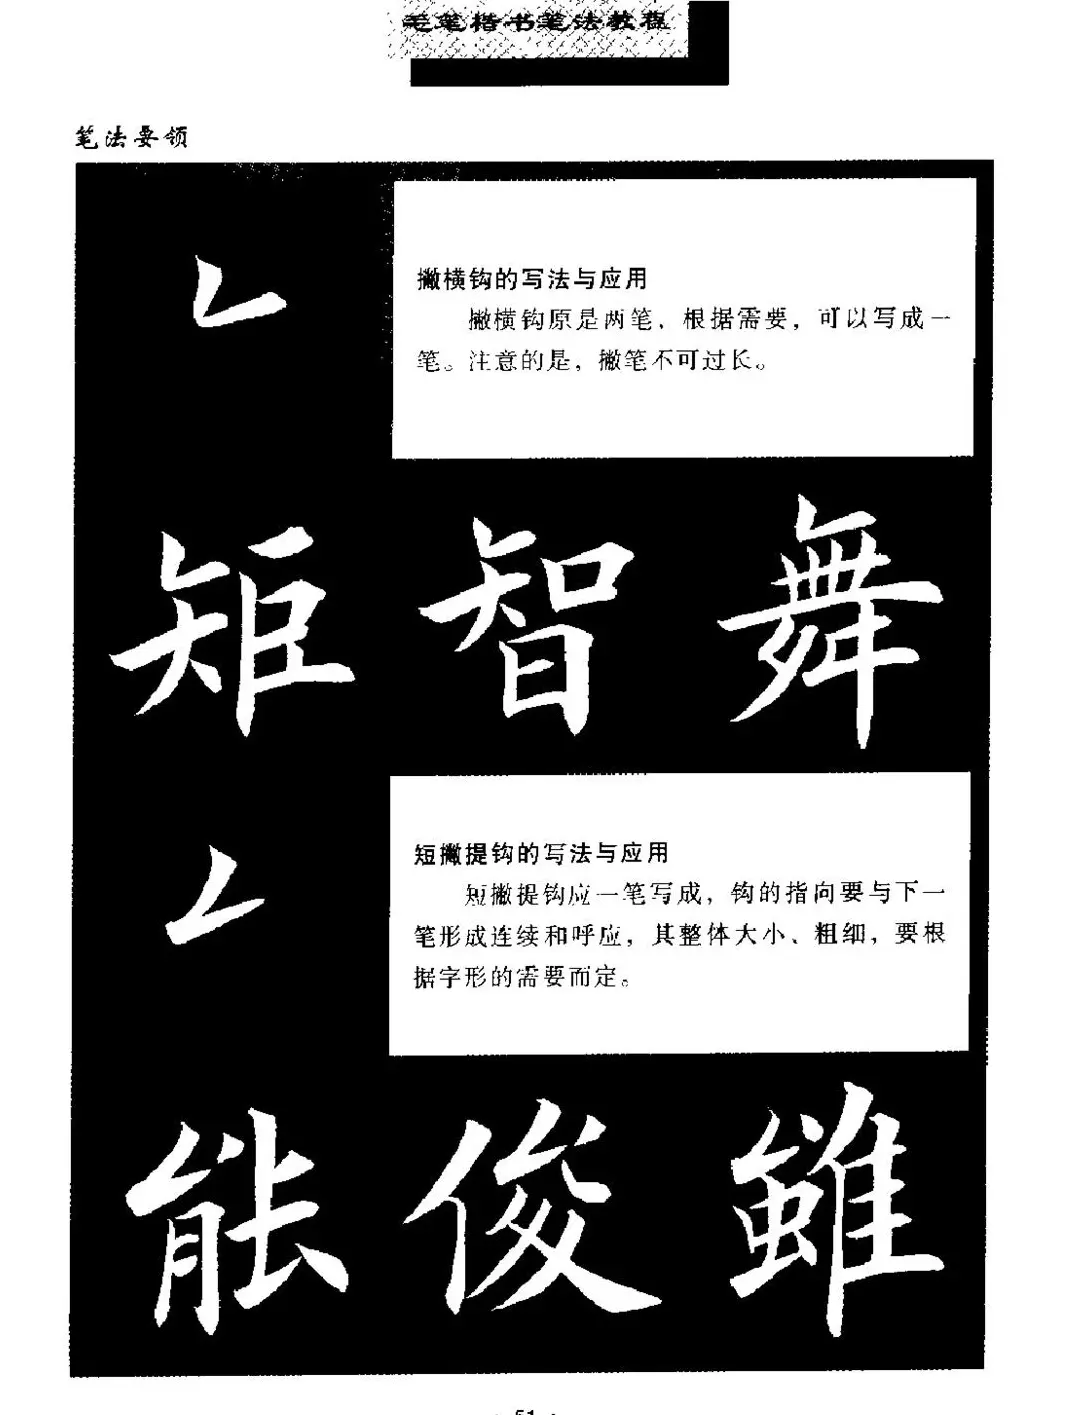 毛笔楷书笔法教程
笔法要领
撇横钩的写法与应用
撇横钩原是两笔，根据需要，可以写成一
笔。注意的是，撇笔不可过长。
矩智舞
短撇提钩的写法与应用
短撇提钩应一笔写成，钩的指向要与下一
笔形成连续和呼应，其整体大小、粗细，要根
据字形的需要而定。
能俊雖
· 51 ·